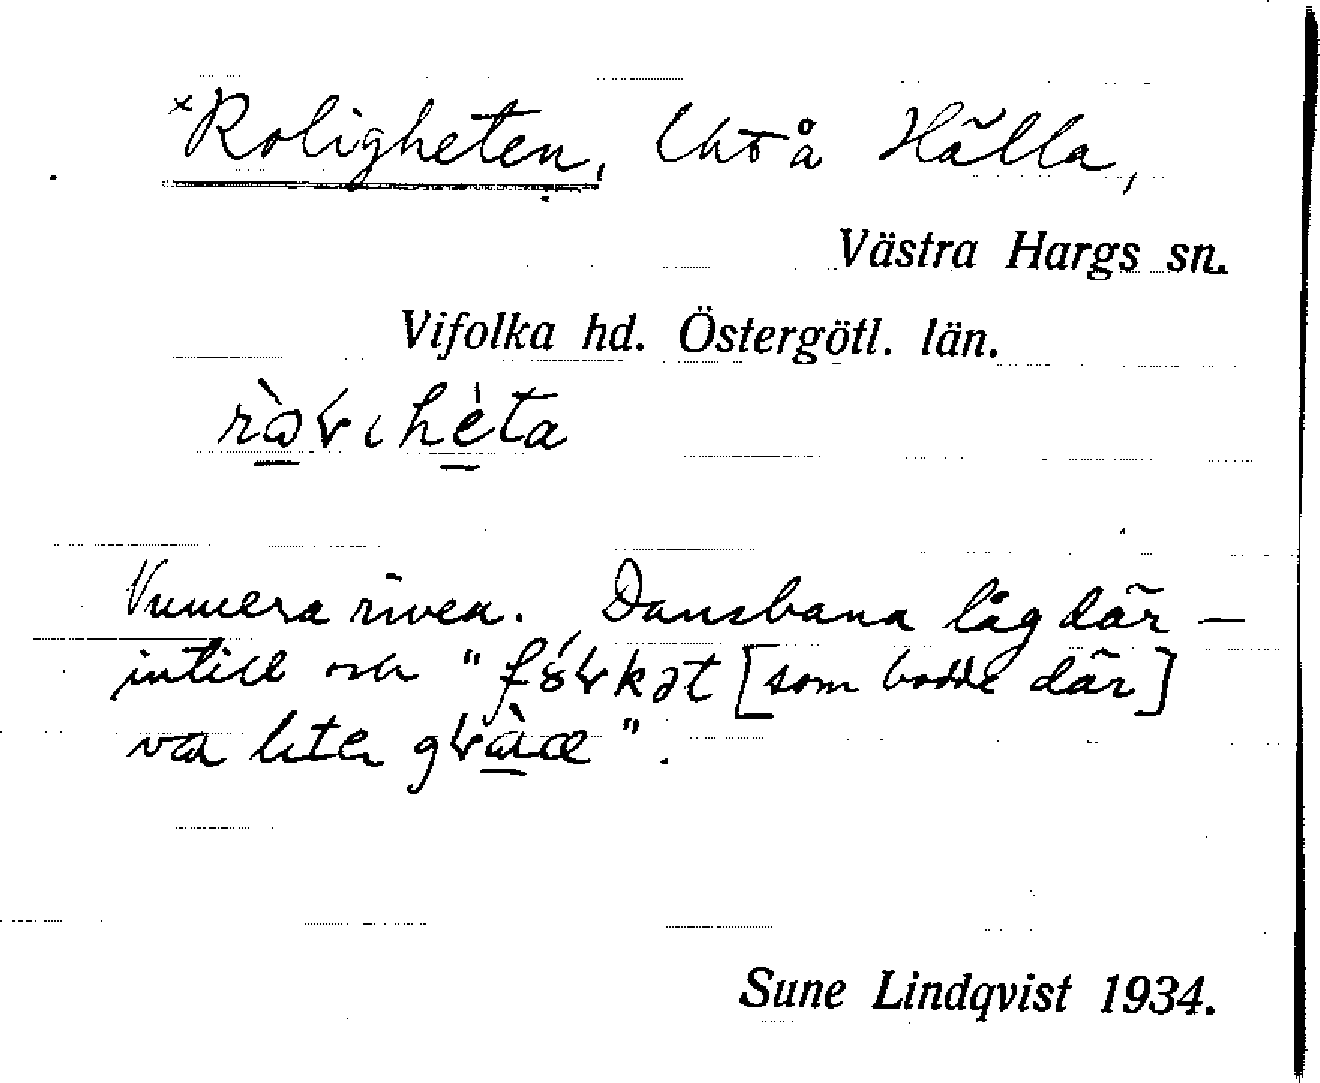 ×Roligheten, lht å Hälla,
Västra Hargs sn.
Vifolka hd. Östergötl. län.
Numera riven. Dansbana låg där-
intill och "fóɽkət [som bodde där]
va lite gɽàa".
Sune Lindqvist 1934.